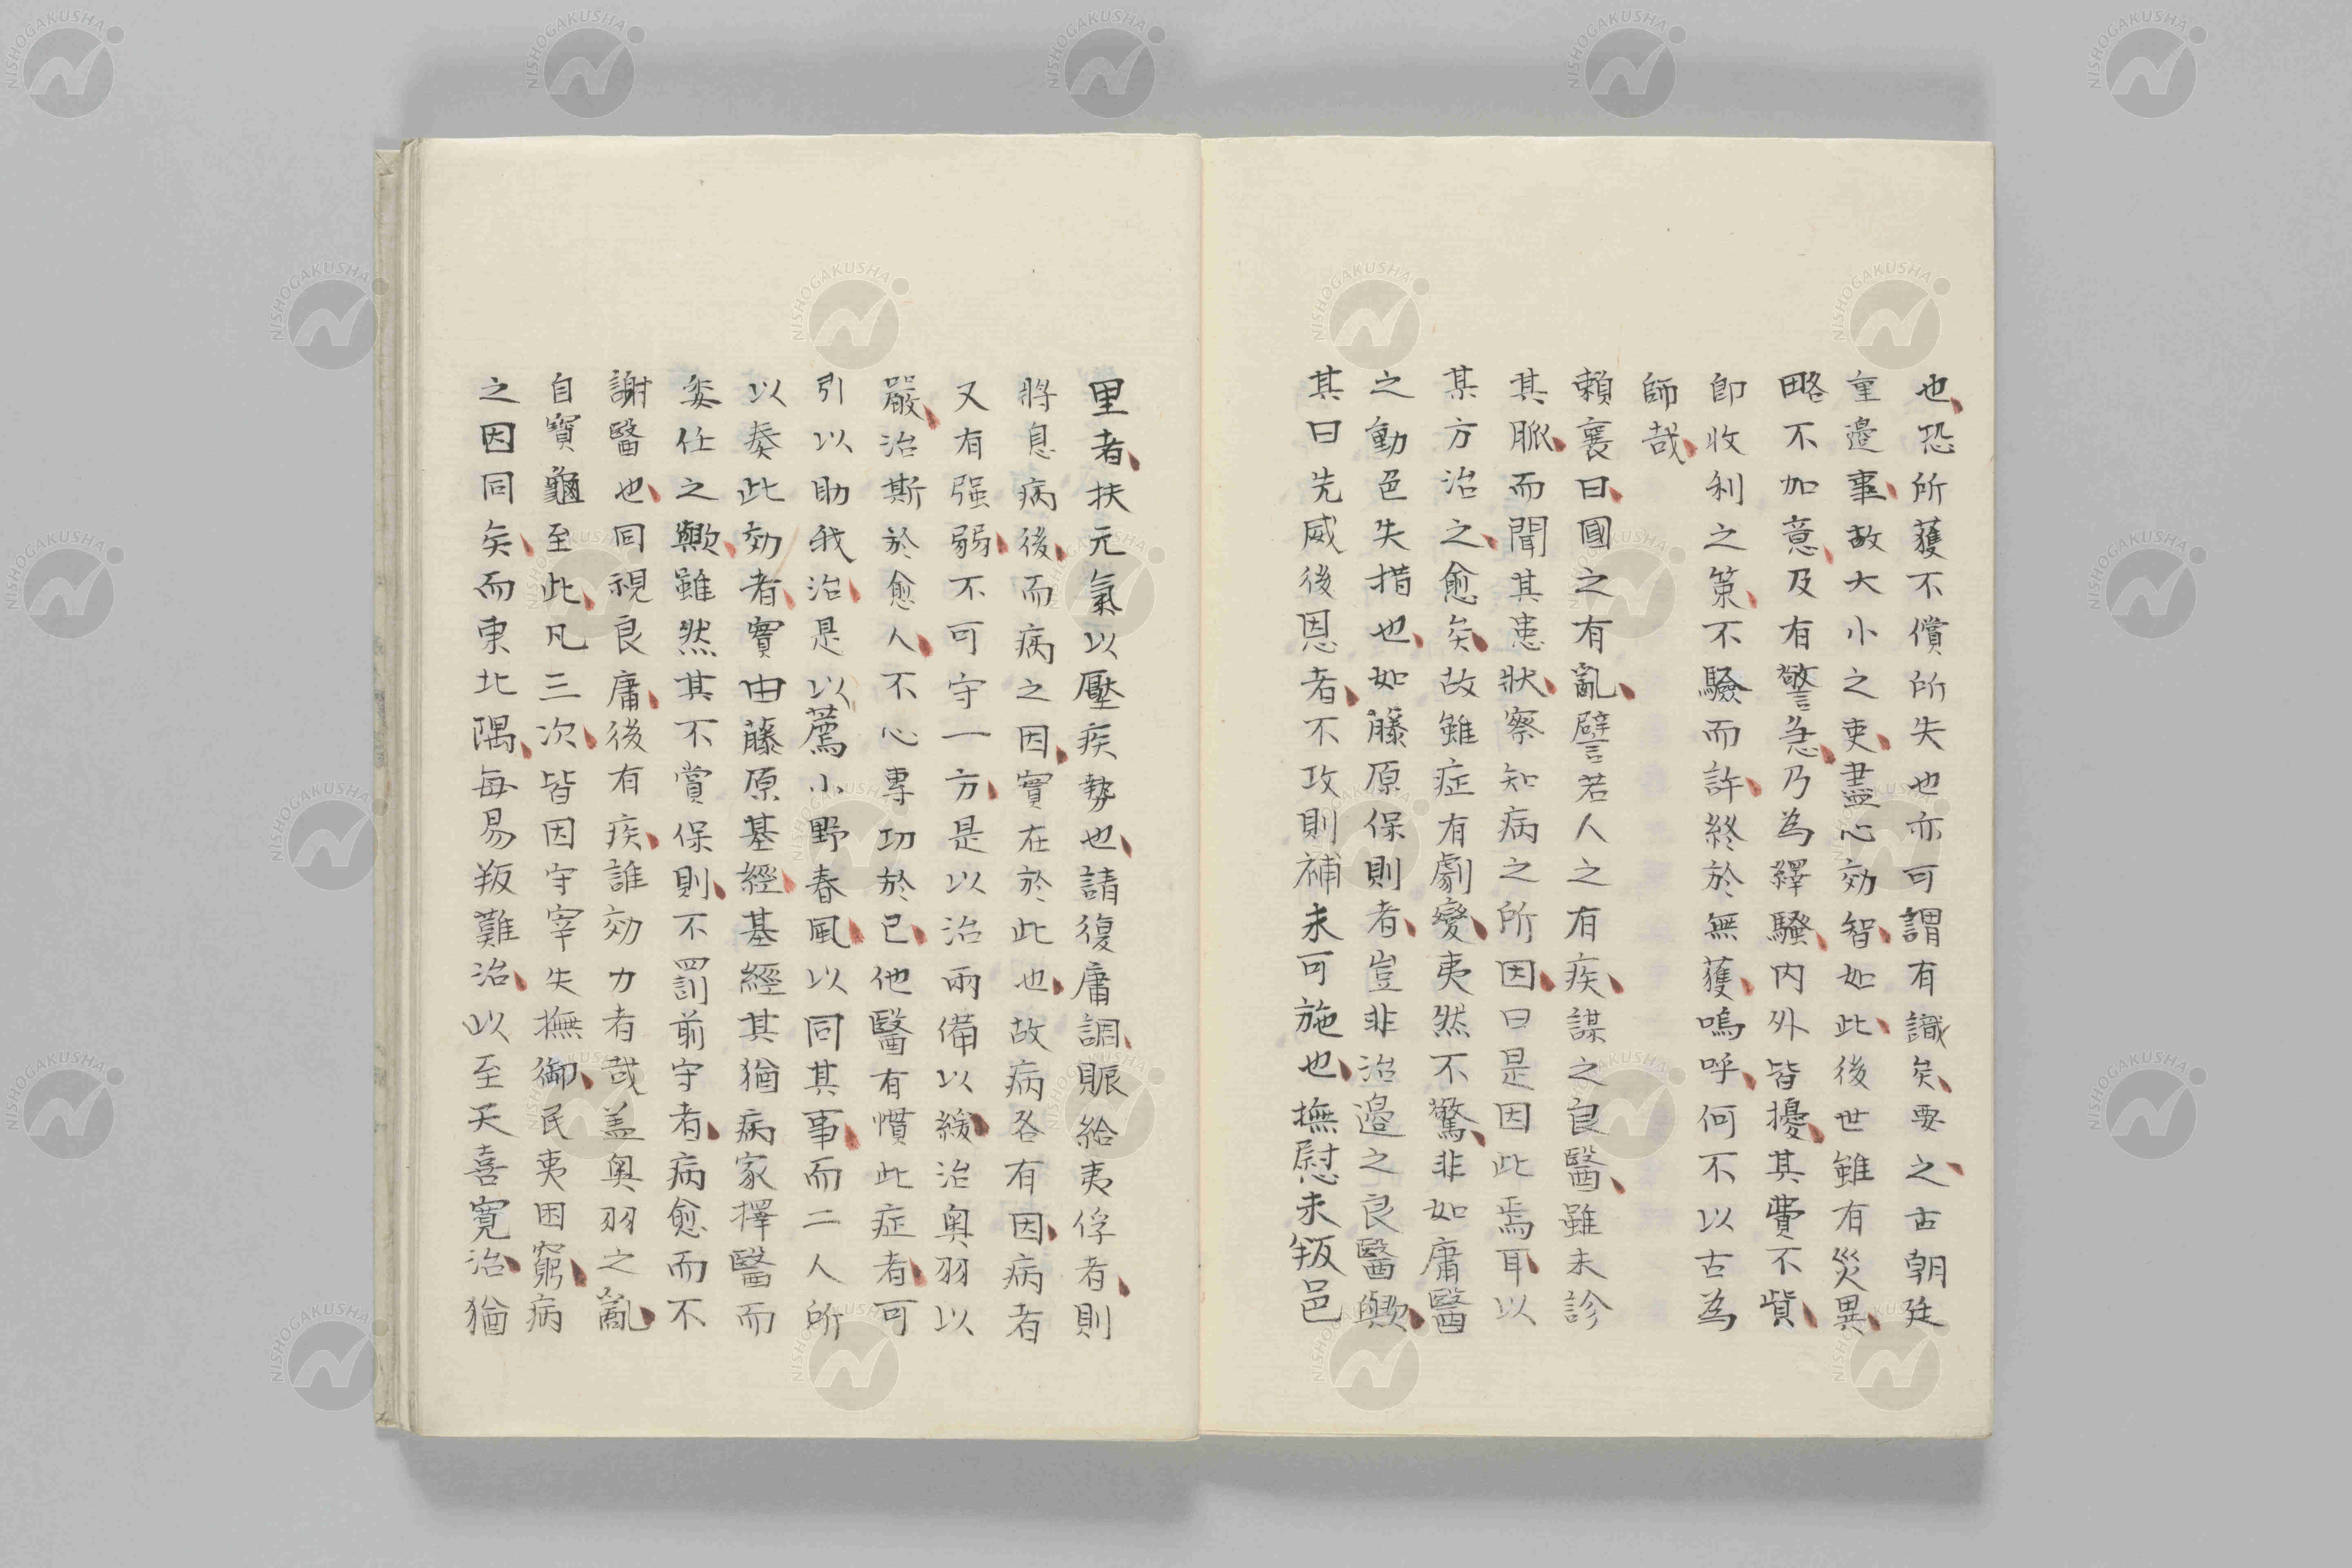 也恐所獲不償所失也亦可謂有識矣要之古朝廷
重邊事故大小之吏盡心効智如此後世雖有災異
略不加意及有警急乃為繹騷内外皆擾其費不貲
即收利之策不驗而許終於無獲嗚呼何不以古為
師哉
賴襄曰國之有亂譬若人之有疾謀之良醫雖未診
其脈而聞其患狀察知病之所因曰是因此焉耳以
某方治之愈矣故雖症有劇變夷然不驚非如庸醫
之動色失措也如藤原保則者豈非治邊之良醫歟
其曰先威後恩者不攻則補未可施也撫慰未叛邑
里者扶元氣以壓疾勢也請復庸調賑給夷俘者則
將息病後而病之因實在於此也故病各有因病者
又有强弱不可守一方是以治兩備以緩治奥羽以
嚴治斯於愈人不心專功於已他醫有慣此症者可
引以助我治是以薦小野春風以同其事而二人所
以奏此効者實由藤原基經基經其猶病家擇醫而
委任之歟雖然其不賞保則不罰前守者病愈而不
謝醫也同視良庸後有疾誰効力者哉盖奥羽之亂
自寶龜至此凡三次皆因守宰失撫御民夷困窮病
之因同矣而東北隅每易叛難治以至天喜寬治猶
NISHOGAKUSHA